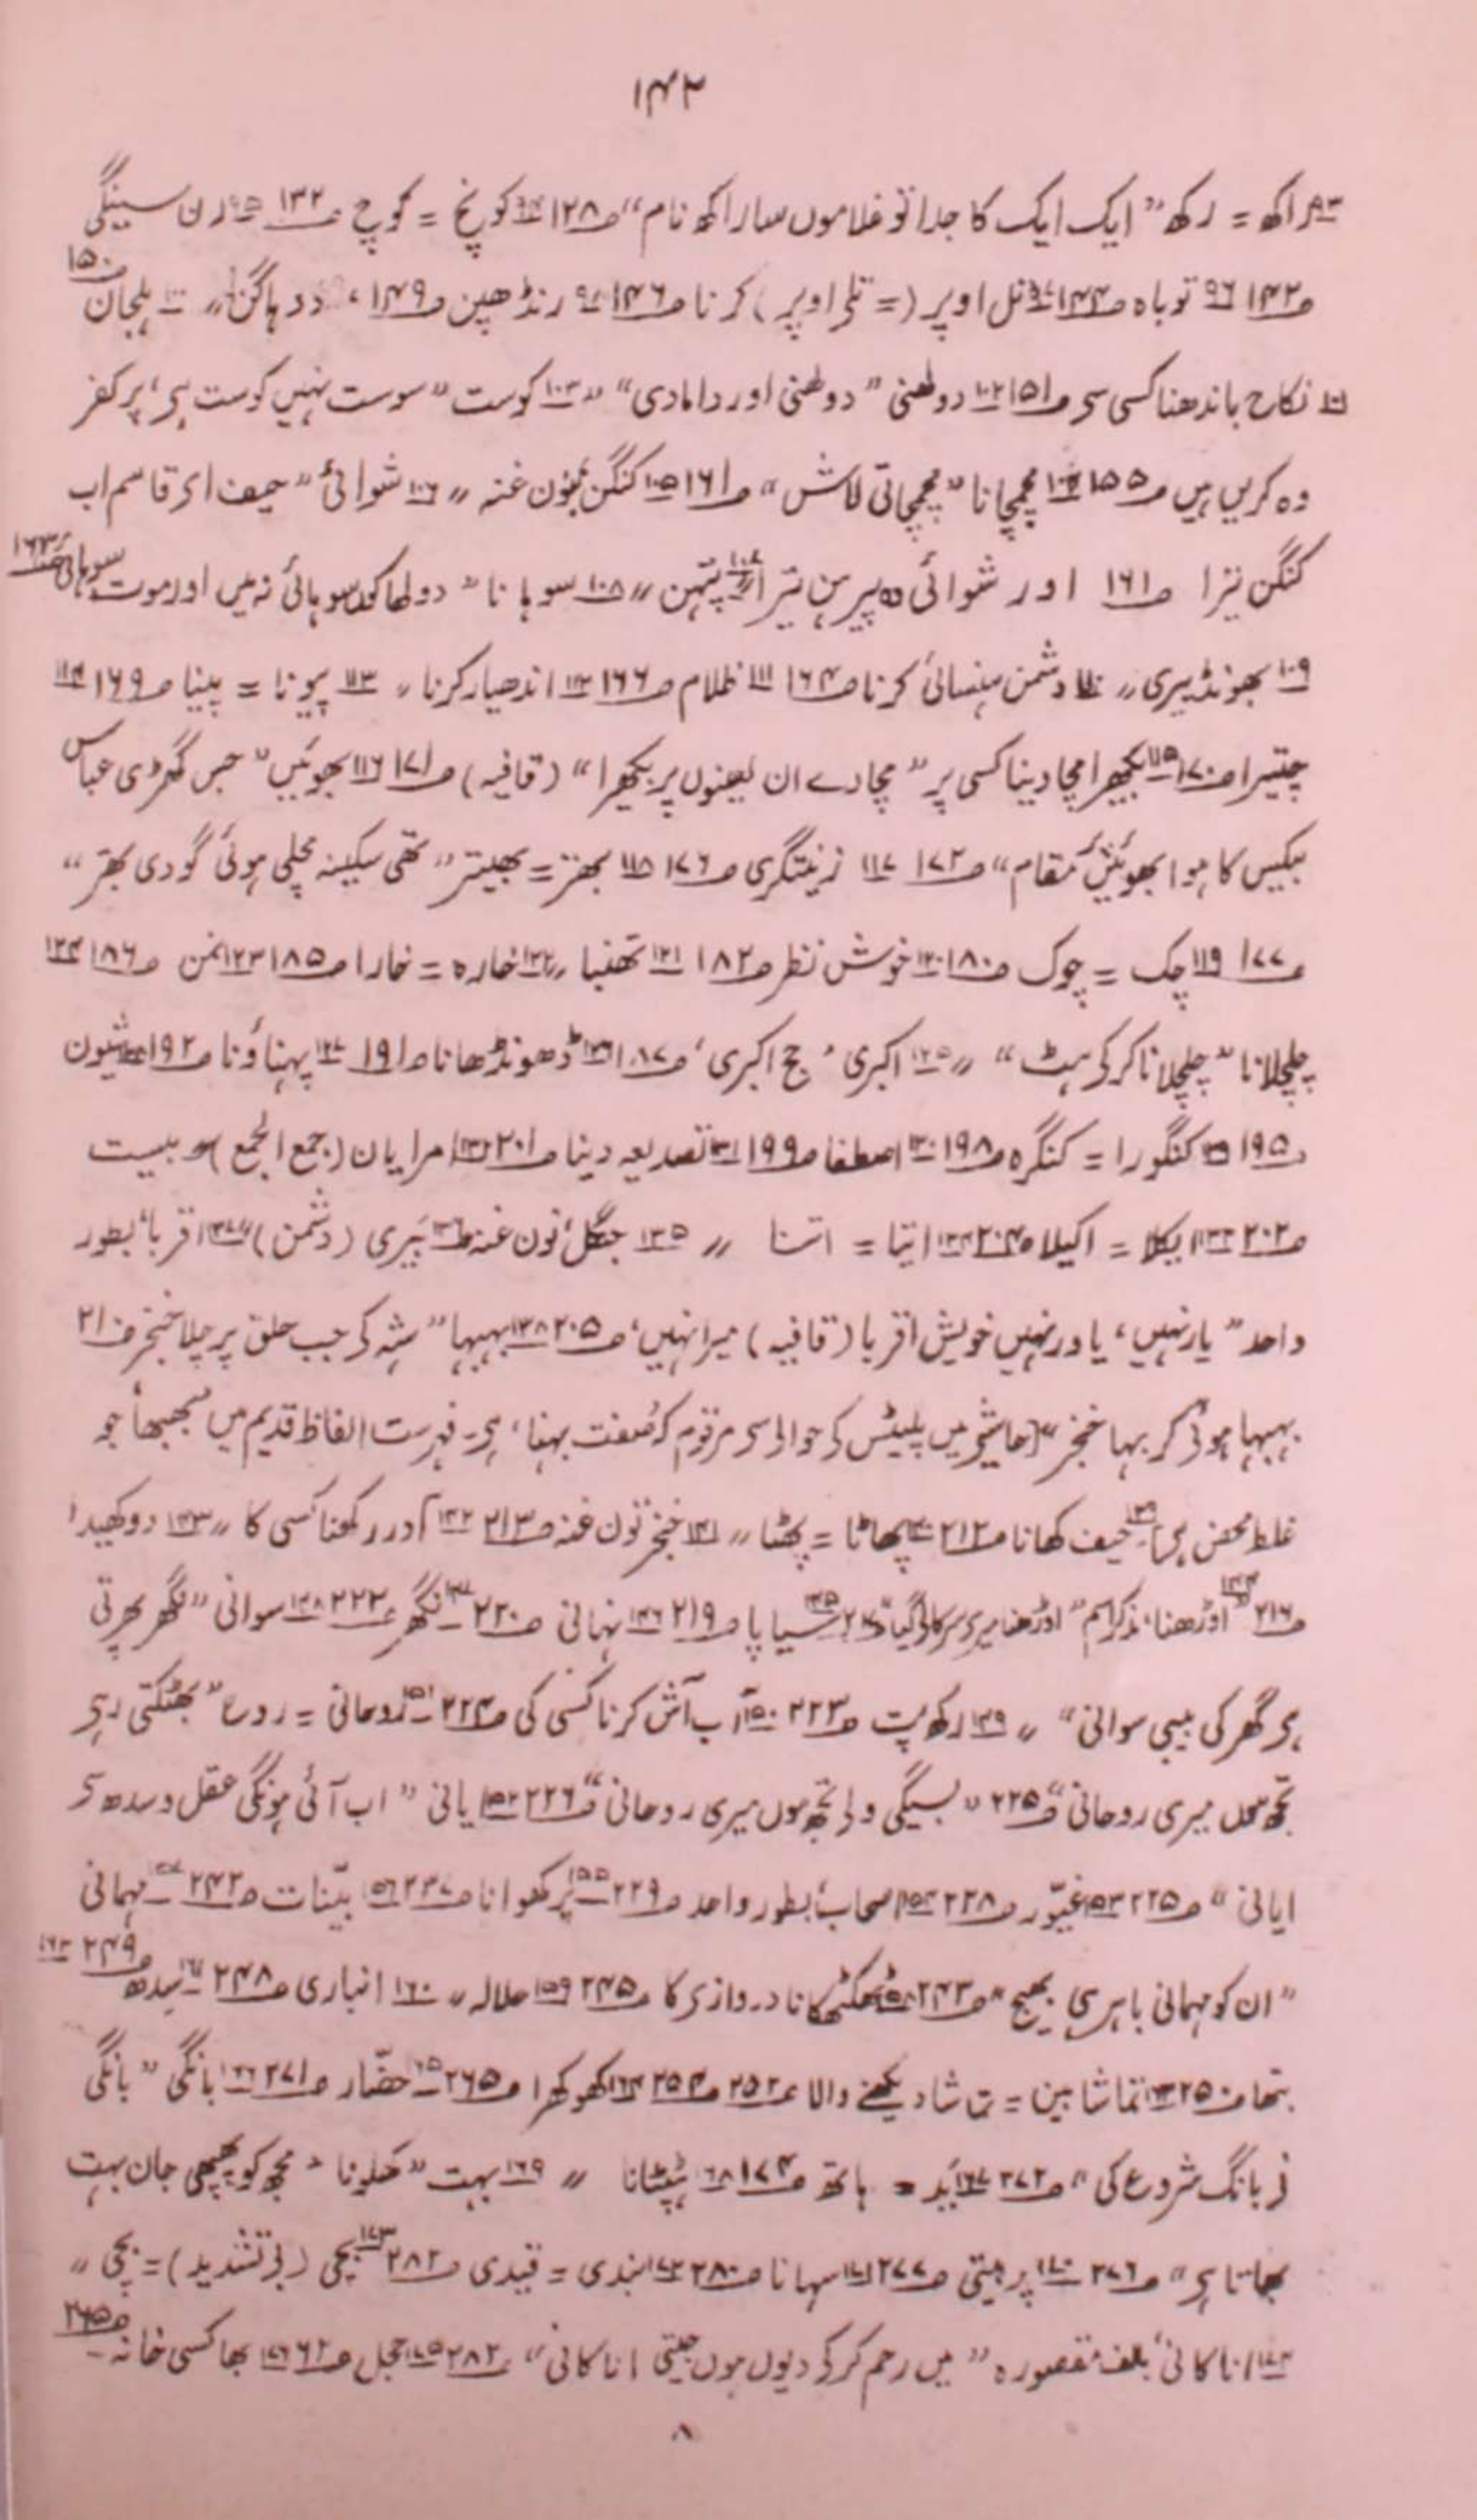 ۱۴۲
۹۳ راکھ = رکھ ”ایک ایک کا جدا تو غلاموں سا راکھ نام“ ص۱۲۸ ۹۴ کونچ = کوچ ص۱۳۲ ۹۵ رن سینگی
ص۱۴۲ ۹۶ توباہ ص۱۴۴ ۹۷ تل اوپر (= تلے اوپر) کرنا ص۱۴۶ ۹۸ رنڈھپن ص۱۴۹، دد ہاگن ” ۱۰۰ ہلجان ص۱۵۰
۱۰۱ نکاح باندھنا کسی سے ص۱۵۱ ۱۰۲ دولھنی ”دولھنی اور دامادی“ ” ۱۰۳ کوست ”سوست نہیں کوست ہے، پر کفر
وہ کریں ہیں ص۱۵۵ ۱۰۴ چمچانا ”چمچاتی لاش“ ص۱۶۱ ۱۰۵ کنگن بنون غنہ ” ۱۰۶ شوائی ”حیف اے قاسم اب
کنگن ترا ص۱۶۱ اور شوائی وہ پیرہن تیرا“ ۱۰۷ پتہن ” ۱۰۸ سوہانا ”دولھا کو سوہائی نہیں اور موت سوہائی ہے ص۱۶۳
۱۰۹ بھونڈپیری ” ۱۱۰ دشمن ہنسائی کرنا ص۱۶۴ ۱۱۱ ظلام ص۱۶۶ ۱۱۲ اندھیار کرنا ” ۱۱۳ پونا = پینا ص۱۶۹ ۱۱۴
چتیرا ص۱۷۰ ۱۱۵ بکھیرا مچا دینا کسی پر ”مچادے ان لعینوں پر بکھیرا“ (قافیہ) ص۱۷۱ ۱۱۶ بھوئیں ”جس گھڑی عباس
بیکس کا ہوا بھوئیں مقام“ ص۱۷۲ ۱۱۷ زینتگری ص۱۷۶ ۱۱۸ بھتر = بھیتر ”تھی سکینہ مچلی ہوئی گودی بھتر“
ص۱۷۷ ۱۱۹ چک = چوک ص۱۸۰ ۱۲۰ خوش نظر ص۱۸۲ ۱۲۱ تھنبا ” ۱۲۲ خارہ = خارا ص۱۸۵ ۱۲۳ نمن ص۱۸۶ ۱۲۴
چلچلانا ”چلچلانا کرکے ہٹ“ ” ۱۲۵ اکبری ’حج اکبری‘ ص۱۸۷ ۱۲۶ ڈھونڈھانا ص۱۹۱ ۱۲۷ پہناؤنا ص۱۹۲ ۱۲۸ شیون
ص۱۹۵ ۱۲۹ کنگورا = کنگرہ ص۱۹۸ ۱۳۰ اصطفا ص۱۹۹ ۱۳۱ تصدیعہ دینا ص۲۰۱ ۱۳۲ امرایان (جمع الجمع) و بیست
ص۲۰۲ ۱۳۳ ایکلا = اکیلا ص۲۰۴ ۱۳۴ ایتا = اتنا ” ۱۳۵ جنگل، نون غنہ ۱۳۶ بَیری (دشمن) ” ۱۳۷ اقربا، بطور
واحد ”یار نہیں، یاور نہیں خویش اقربا (قافیہ) میرا نہیں، ص۲۰۵ ۱۳۸ بہبہا ”شہ کے جب حلق پر چلا خنجر ف۲۱
بہبہا ہوئی کر بہا خنجر“ (حاشیے میں پلیٹس کے حوالے سے مرقوم کہ صفت بہنا، ہے۔ فہرست الفاظ قدیم میں ’بھبھا‘ جو
غلط محض ہے) ۱۳۹ حیف کھانا ص۲۱۲ ۱۴۰ پھاٹا = پھٹا ” ۱۴۱ خنجر نون غنہ ص۲۱۳ ۱۴۲ آدر رکھنا کسی کا ” ۱۴۳ دوکھیدا
ص۲۱۶ ۱۴۴ اوڑھنا، مذکر اسم ”اوڑھنا میرے سر کا لے گیا“ ۱۴۵ سیاپا ص۲۱۹ ۱۴۶ نہانی ص۲۲۰ ۱۴۷ نگھر ص۲۲۲ ۱۴۸ سوانی ”نگھر پھرتی
ہے گھر کی بیبی سوانی“ ” ۱۴۹ رکھ پت ص۲۲۳ ۱۵۰ آب آش کرنا کسی کی ص۲۲۴ ۱۵۱ روحانی = روح ”بھٹکتی رہے
تجھ موں میری روحانی“ ص۲۲۵ ”بسیگی ولے تجھ موں میری روحانی“ ص۲۲۶ ۱۵۲ یانی ”اب آئی ہونگی عقل و سدھ سے
ایانی“ ص۲۲۵ ۱۵۳ غیّور ص۲۲۸ ۱۵۴ اصحاب، بطور واحد ص۲۲۹ ۱۵۵ پرکھوانا ص۲۳۷ ۱۵۶ بیّنات ص۲۴۲ ۱۵۷ مہمانی
”ان کو مہمانی باہر ہی بھیج“ ص۲۴۳ ۱۵۸ ٹھکٹھکانا دروازے کا ص۲۴۵ ۱۵۹ حلالہ ” ۱۶۰ انباری ص۲۴۸ ۱۶۱ سِدھ ص۲۴۹ ۱۶۲
بتھا ص۲۵۰ ۱۶۳ تماشا بین = تماشا دیکھنے والا ص۲۵۲ ص۲۵۴ ۱۶۴ کھوکھرا ص۲۶۵ ۱۶۵ حضّار ص۲۷۱ ۱۶۶ بانگی ”بانگی
نے بانگ شروع کی“ ص۲۷۲ ۱۶۷ ید = ہاتھ ص۲۷۴ ۱۶۸ ٹپٹانا ” ۱۶۹ بہت ”کھلونا مجھ کو پھپھی جان بہت
بھاتا ہے“ ص۲۷۶ ۱۷۰ پرھتی ص۲۷۷ ۱۷۱ سہانا ص۲۸۰ ۱۷۲ بندی = قیدی ص۲۸۲ ۱۷۳ بچی (بے تشدید) = بچّی ”
۱۷۴ اناکانی، بالف مقصورہ ”میں رحم کر کے دیوں موں جیتی اناکانی“ ص۲۸۲ ۱۷۵ حجل ص۶۲ ۱۷۶ بھاکسی خانہ ص۲۶۵
۸